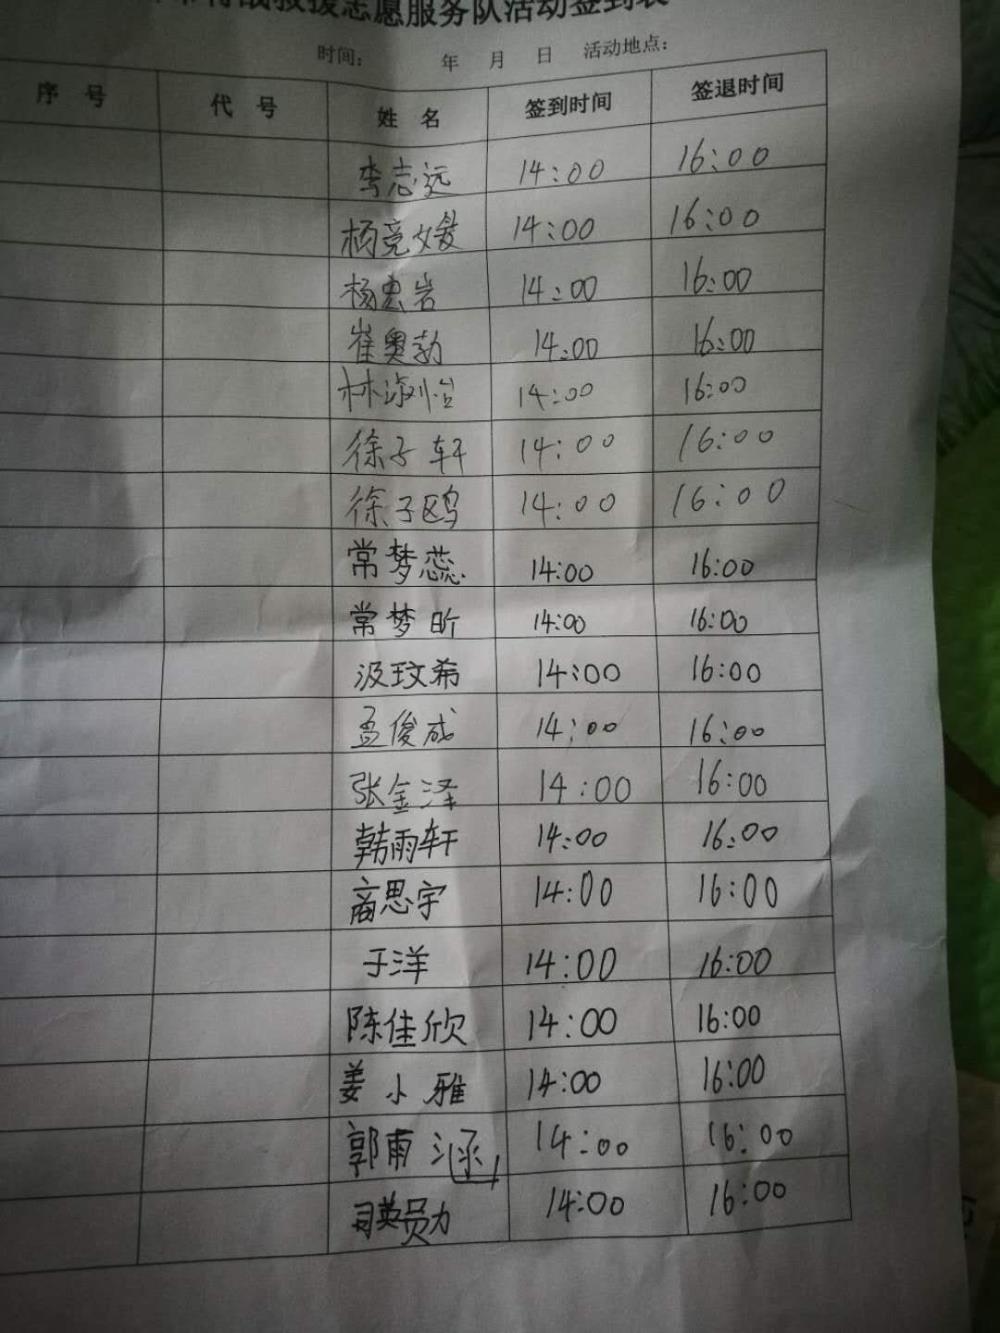 救援志愿服务队活动签到表
时间： 年 月 日 活动地点：
序 号 代 号 姓 名 签到时间 签退时间
李志远 14:00 16:00
杨竞媛 14:00 16:00
杨惠岩 14:00 16:00
崔奥勃 14:00 16:00
林淑怡 14:00 16:00
徐子轩 14:00 16:00
徐子鸥 14:00 16:00
常梦蕊 14:00 16:00
常梦昕 14:00 16:00
汲玟希 14:00 16:00
孟俊成 14:00 16:00
张金泽 14:00 16:00
韩雨轩 14:00 16:00
商思宇 14:00 16:00
于洋 14:00 16:00
陈佳欣 14:00 16:00
姜小雅 14:00 16:00
郭甫涵 14:00 16:00
司英员力 14:00 16:00